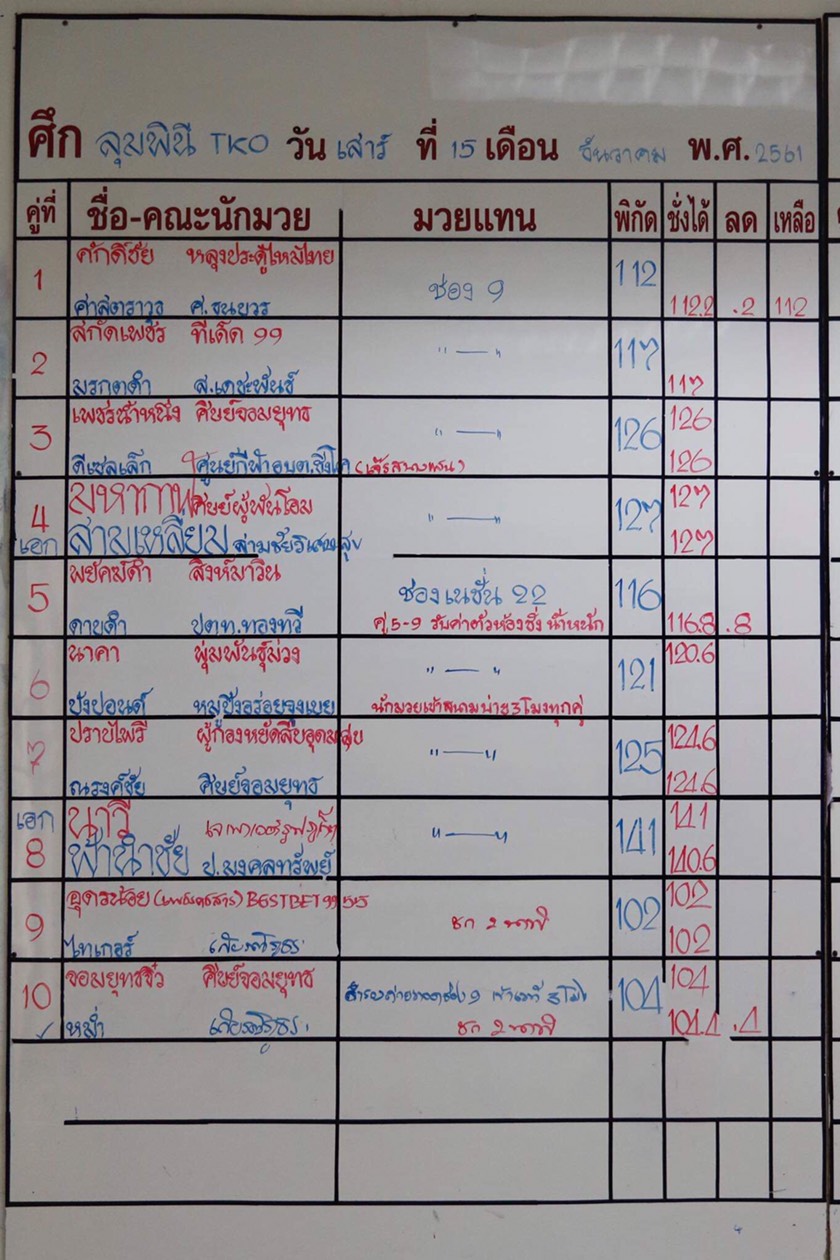 ศึก ลุมพินี TKO วัน เสาร์ ที่ 15 เดือน ธันวาคม พ.ศ. 2561
คู่ที่ ชื่อ-คณะนักมวย มวยแทน พิกัด ชั่งได้ ลด เหลือ
1 ศักดิ์ชัย หลุงประดู่ไหมไทย ช่อง 9 112
ศาสตราวุธ ศ.ธนยวร 112.2 .2 112
2 สกัดเพชร ทีเด็ด 99 " — " 117
มรกตดำ ส.เดชะพันธ์ 117
3 เพชรน้ำหนึ่ง ศิษย์จอมยุทธ " — " 126 126
ดีเซลเล็ก ศูนย์กีฬาอบต.ชิงโค 126
4 มหากาฬ ศิษย์ผู้พันโอม " — " 127 127
เอก สามเหลี่ยม ล่ามชัยวิเศษสุข 127
5 พยัคฆ์ดำ สิงห์มาวิน ช่องเนชั่น 22 116
ดาบดำ ปตท.ทองทวี คู่ 5-9 รับค่าตัวห้องชั่งน้ำหนัก 116.8 .8
6 นาคา พุ่มพันธุ์ม่วง " — " 121 120.6
ปังปอนด์ หมูปิ้งอร่อยจุงเบย นักมวยเข้าสนามบ่าย 3 โมงทุกคู่
7 ปราบไพรี ผู้กองหยัดสืบอุดมสุข " — " 125 124.6
ณรงค์ชัย ศิษย์จอมยุทธ 124.6
เอก นาวี " — " 141 141
8 ฟ้านำชัย ป.มงคลทรัพย์ 140.6
9 อุดรน้อย BESTBET 99 515 ชก 2 นาที 102 102
ไทเกอร์ 102
10 จอมยุทธจิ๋ว ศิษย์จอมยุทธ 104 104
หม่ำ ชก 2 นาที 104.4 .4